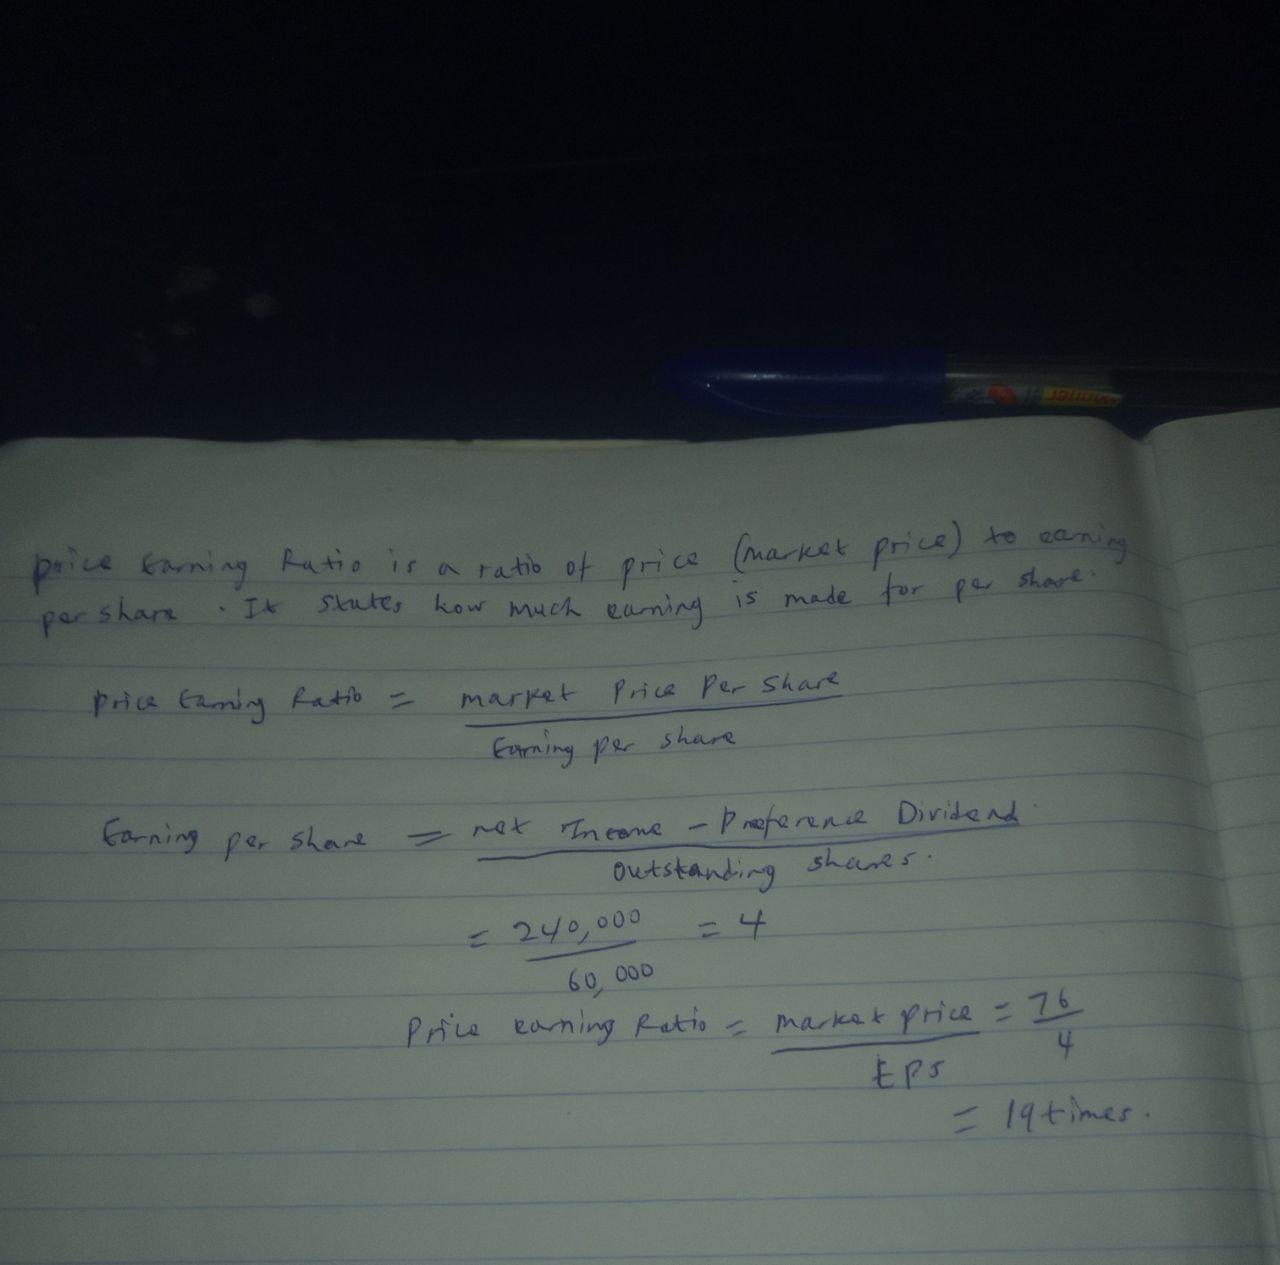 price Earning Ratio is a ratio of price (market price) to earning
per share . It states how much earning is made for per share.
price Earning Ratio = market Price Per Share
Earning per share
Earning per share = net Income - Preference Dividend
outstanding shares.
= 240,000 = 4
60,000
Price earning Ratio = market price = 76
EPS 4
= 19 times.